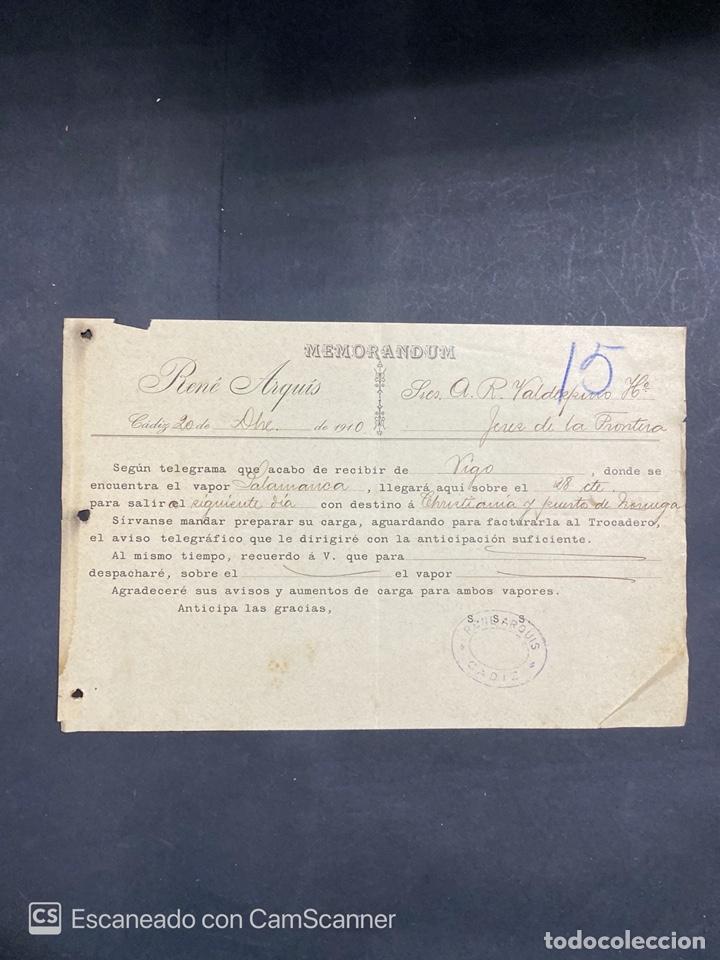 MEMORANDUM
15
René Arquis
Sres. A. R. Valdespino Hº
Cádiz 20 de Dbre. de 1910
Jerez de la Frontera
Según telegrama que acabo de recibir de Vigo, donde se
encuentra el vapor Salamanca, llegará aquí sobre el 28 cte.
para salir el siguiente día con destino á Christiania y puerto de Noruega
Sírvanse mandar preparar su carga, aguardando para facturarla al Trocadero,
el aviso telegráfico que le dirigiré con la anticipación suficiente.
Al mismo tiempo, recuerdo á V. que para
despacharé, sobre el el vapor
Agradeceré sus avisos y aumentos de carga para ambos vapores.
Anticipa las gracias,
S. S. S.
RENE ARQUIS
CADIZ
CS Escaneado con CamScanner
todocoleccion